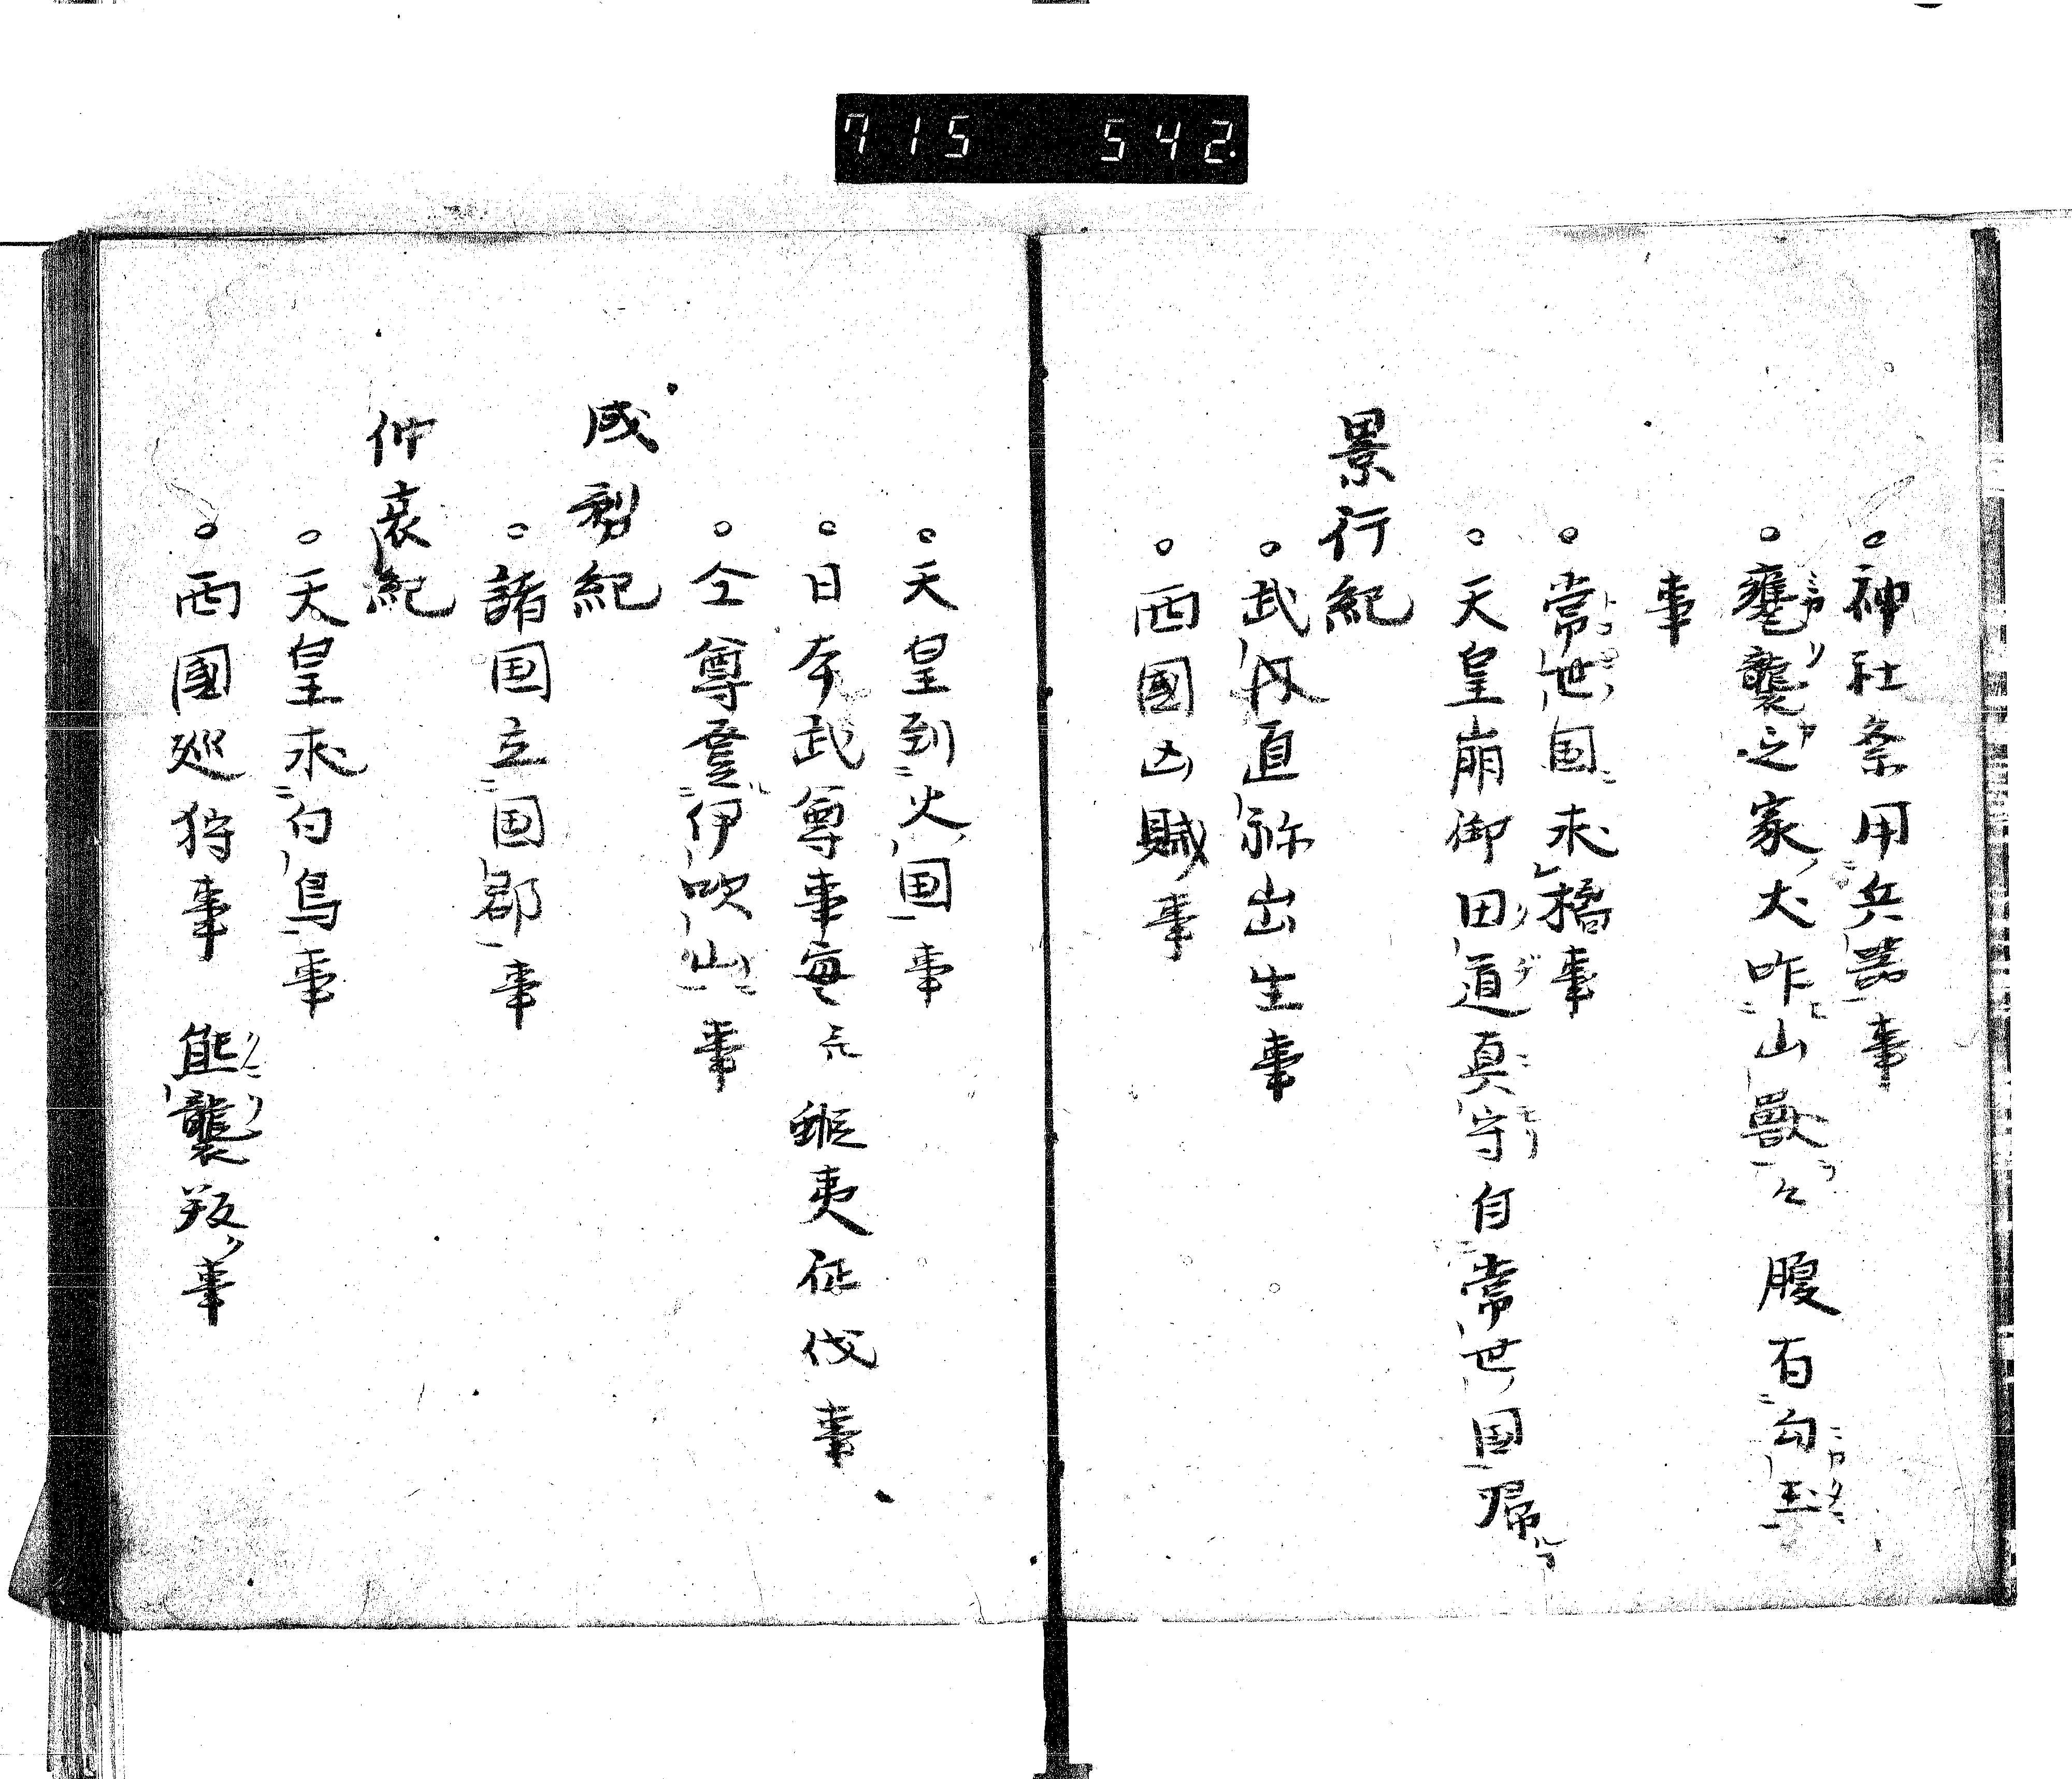 715 542.
○神社祭用兵器事
○甕襲之家犬咋山獣々腹有勾玉
事
○常世国求橘事
○天皇崩御田道真守自常世国帰
景行紀
○武内直祢出生事
○西國凶賊事
○天皇到火国事
○日本武尊事 蝦夷征伐事
○仝尊登伊吹山事
成務紀
○諸国立国郡事
仲哀紀
○天皇求白鳥事
○西國巡狩事 熊襲叛事